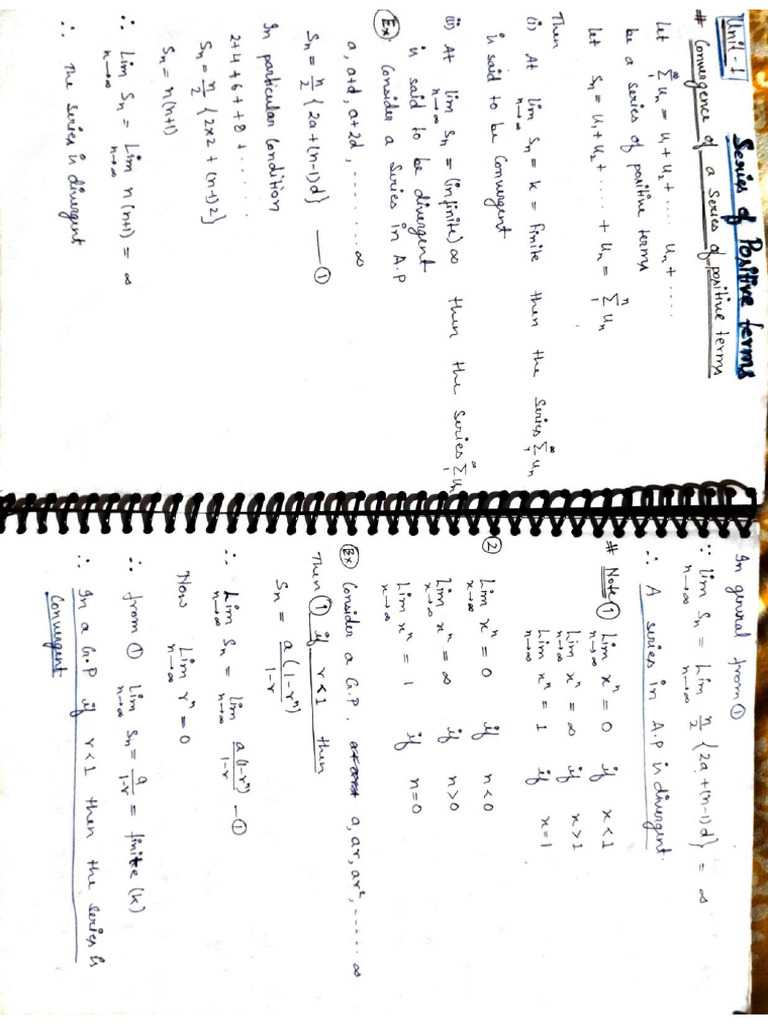 Unit-1
Series of Positive terms
# Convergence of a series of positive terms
Let ∞∑₁ uₙ = u₁ + u₂ + ..... uₙ + .....
be a series of positive terms
let Sₙ = u₁ + u₂ + ..... + uₙ = n∑₁ uₙ
Then
(i) At lim n→∞ Sₙ = k = finite then the series ∞∑₁ uₙ
is said to be Convergent
(ii) At lim n→∞ Sₙ = (infinite) ∞ then the series ∞∑₁ uₙ
is said to be divergent
Ex Consider a series in A.P
a, a+d, a+2d, ........ ∞
Sₙ = n/2 {2a + (n-1)d} — ①
In particular condition
2+4+6++8+ ......
Sₙ = n/2 {2×2 + (n-1)2}
Sₙ = n(n+1)
∴ Lim n→∞ Sₙ = Lim n→∞ n(n+1) = ∞
∴ The series is divergent
In general from ①
∵ lim n→∞ Sₙ = Lim n→∞ n/2 {2a + (n-1)d} = ∞
∴ A series in A.P is divergent.
# Note ① Lim n→∞ xⁿ = 0 if x < 1
Lim n→∞ xⁿ = ∞ if x > 1
Lim n→∞ xⁿ = 1 if x = 1
② Lim x→∞ xⁿ = 0 if n < 0
Lim x→∞ xⁿ = ∞ if n > 0
Lim x→∞ xⁿ = 1 if n = 0
Ex Consider a G.P. a, ar, ar², ...... ∞
Then ① if r < 1 then
Sₙ = a(1-rⁿ)/1-r
∴ Lim n→∞ Sₙ = Lim n→∞ a(1-rⁿ)/1-r — ①
Now Lim n→∞ rⁿ = 0
∴ from ① Lim n→∞ Sₙ = a/1-r = finite (k)
∴ In a G.P if r < 1 then the series is
Convergent